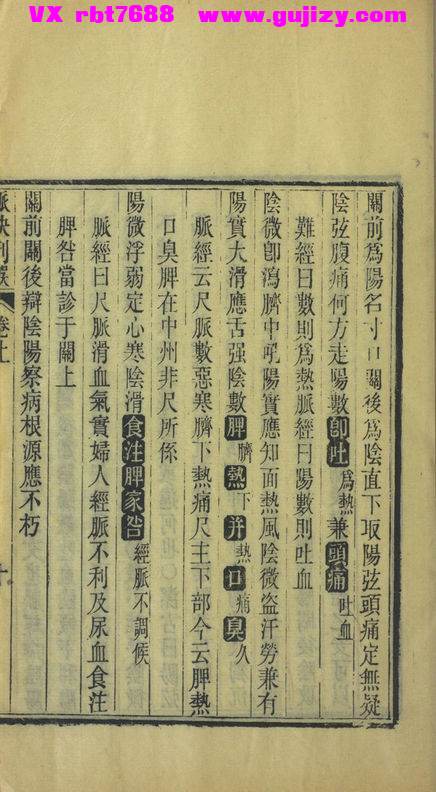 VX rbt7688 www.gujizy.com
關前爲陽名寸口關後爲陰直下取陽弦頭痛定無疑
陰弦腹痛何方走陽數卽吐爲熱兼頭痛吐血
難經曰數則爲熱脈經曰陽數則吐血
陰微卽瀉臍中吼陽實應知面熱風陰微盜汗勞兼有
陽實大滑應舌强陰數脾臍熱下并熱口痛臭久
脈經云尺脈數惡寒臍下熱痛尺主下部今云脾熱
口臭脾在中州非尺所係
陽微浮弱定心寒陰滑食注脾家咎經脈不調候
脈經曰尺脈滑血氣實婦人經脈不利及尿血食注
脾咎當診于關上
關前關後辯陰陽察病根源應不朽
脈訣刊誤 卷上